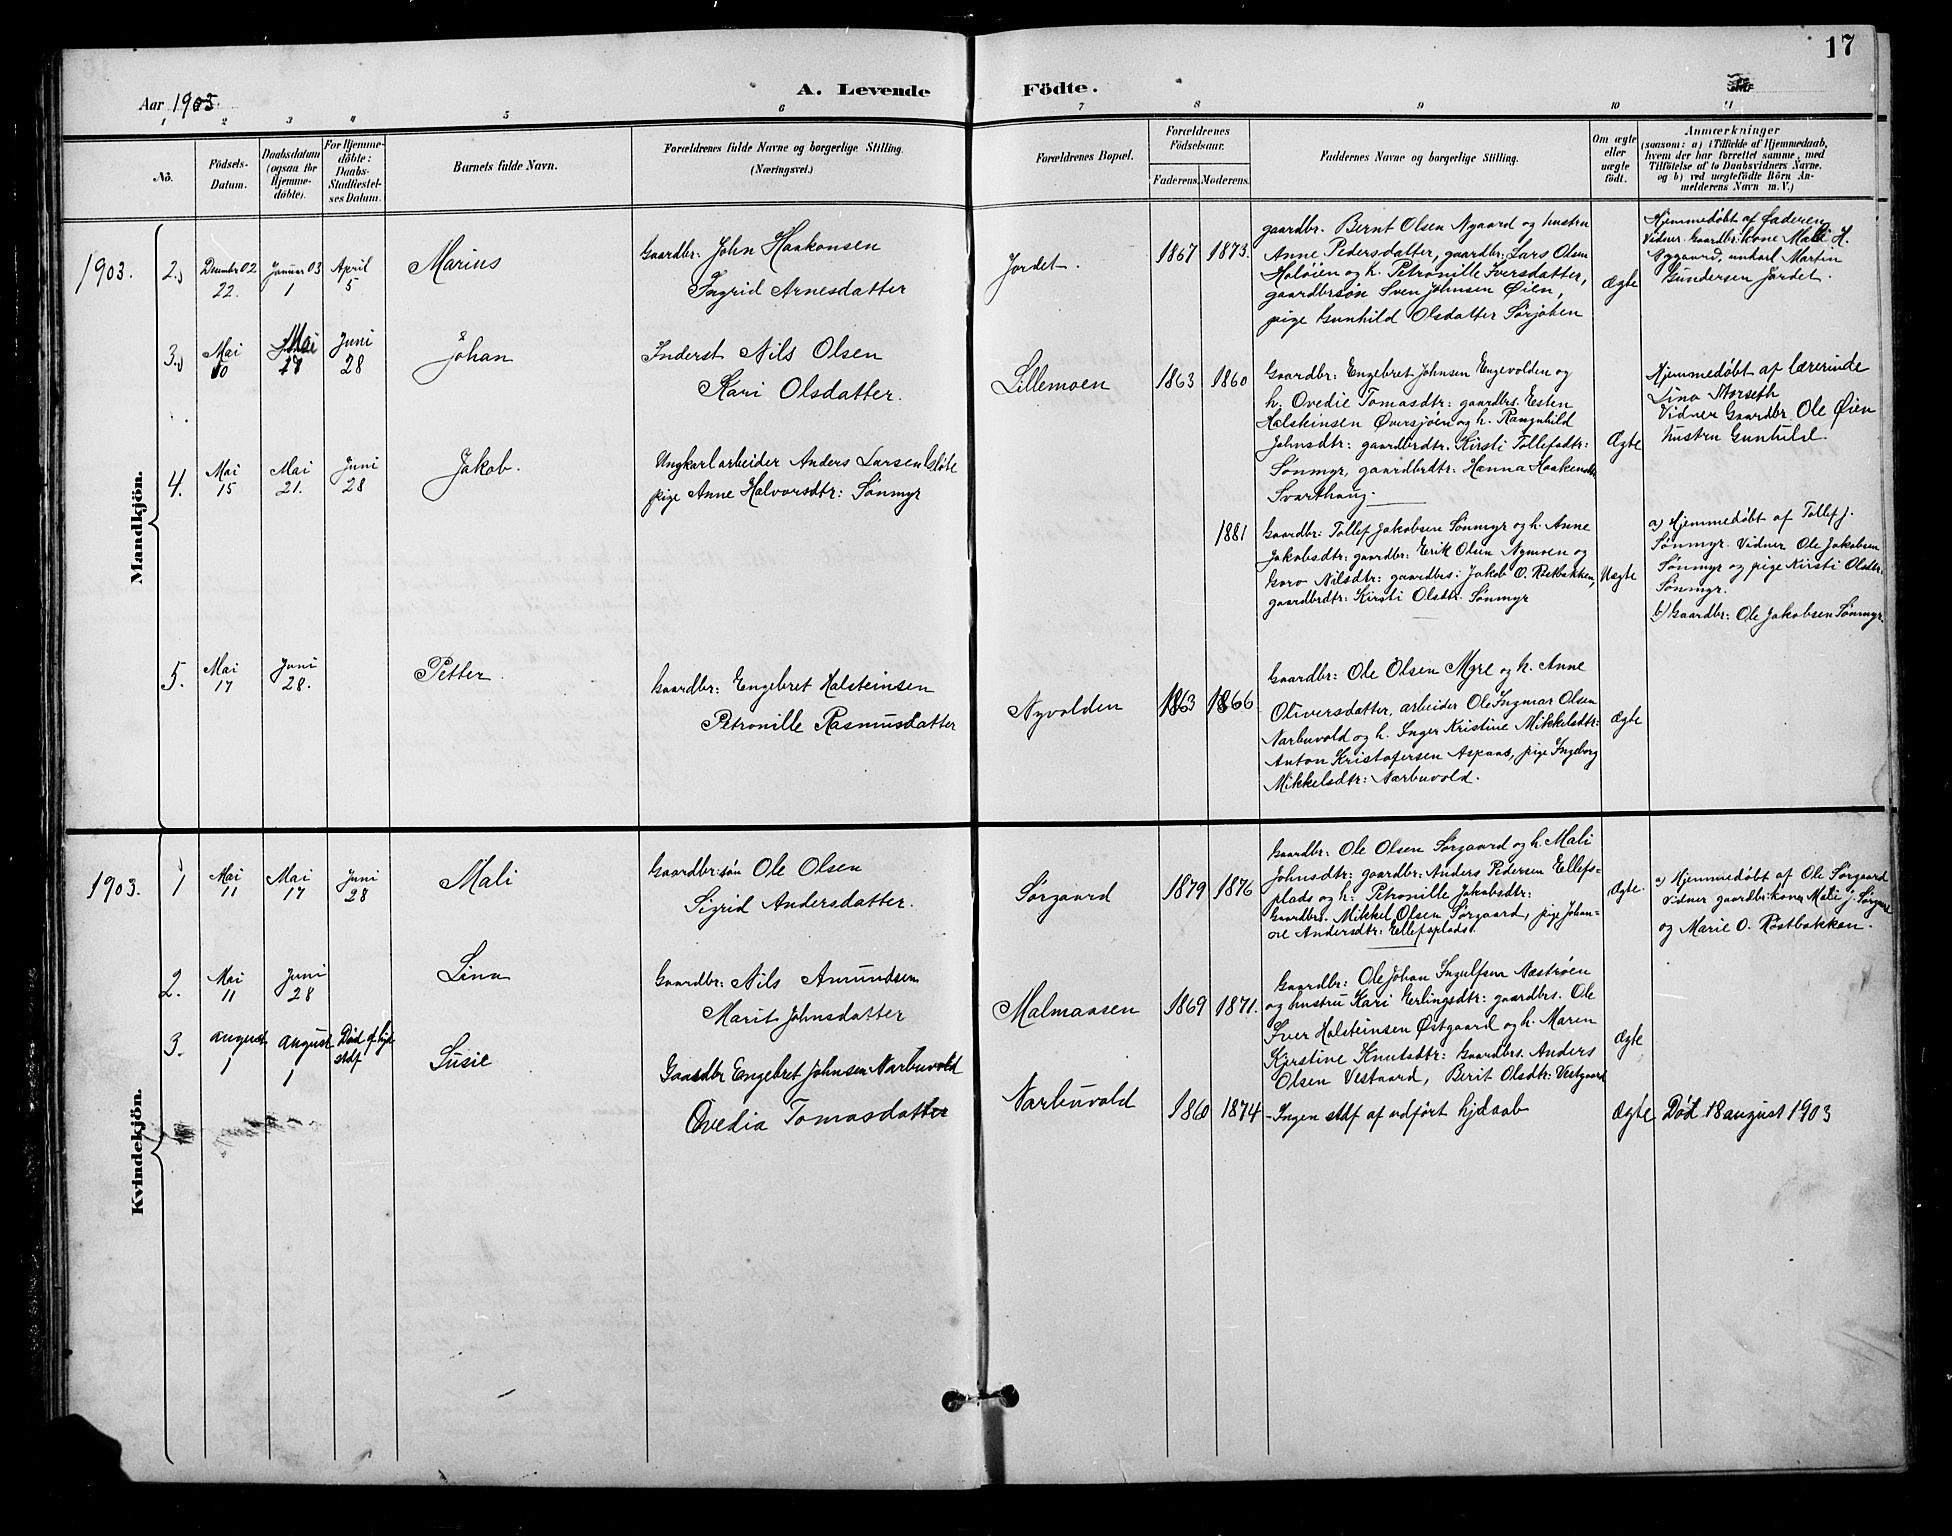 17
Aar 1903.
A. Levende Födte.
1 2 3 4 5 6 7 8 9 10 11
Nö.
Födsels-
Datum.
Daabsdatum
(ogsaa for
Hjemme-
döbte).
For Hjemme-
döbte:
Daabs-
Stadfæstel-
ses Datum.
Barnets fulde Navn.
Forældrenes fulde Navne og borgerlige Stilling.
(Næringsvei.)
Forældrenes Bopæl.
Forældrenes
Födselsaar.
Faderens.
Moderens.
Faddernes Navne og borgerlige Stilling.
Om ægte
eller
uægte
födt.
Anmærkninger
(saasom: a) i Tilfælde af Hjemmedaab,
hvem der har forrettet samme, med
Tilföielse af to Daabsvidners Navne,
og b) ved uægtefödte Börn An-
melderens Navn m. V.)
Mandkjön.
1903.
2.
December 02
22.
Januar 03
1
April
5
Marius
Gaardbr: John Haakonsen
Ingrid Arnesdatter
Jordet.
1867
1873.
gaardbr. Bernt Olsen Nygaard og hustru
Anne Pedersdatter, gaardbr: Lars Olsen
Holøien og h. Petronille Iversdatter,
gaardbrsøn Sven Johnsen Øien,
pige Gunhild Olsdatter
Ægte
Hjemmedøbt af Faderen
Vidner Gaardbr: kone Mali H.
Nygaard, unkarl Martin
Gundersen Jordet.
3.
Mai
10
Mai
17
Juni
28
Johan
Inderst Nils Olsen
Kari Olsdatter.
Lillemoen
1863
1860
Gaardbr: Engebret Johnsen Engevolden og
h. Ovedie Tomasdtr: gaardbrs. Esten
Halsteinsen Øversjøen og h. Rangnhild
Johnsdtr: gaardbrdtr. Kirsti Tollefsdtr:
Sønmyr, gaardbrdtr: Hanna Haakensdtr
Svarthaug.
Ægte
Hjemmedøbt af lærerinde
Lina Storseth
Vidner Gaardbr Ole Øien
hustru Gunhild.
4.
Mai
15
Mai
21.
Juni
28
Jakob.
Ungkarl arbeider Anders Larsen
pige Anne Halvorsdtr: Sønmyr
1881
Gaardbr: Tollef Jakobsen Sønmyr og h. Anne
Jakobsdtr: gaardbr: Erik Olsen Nymoen og
Goro Nilsdtr: gaardbrs: Jakob O. Røstbakken,
gaardbrdtr: Kirsti Olsdtr. Sønmyr
Uægte
a) Hjemmedøbt af Tollef J.
Sønmyr. Vidner Ole Jakobsen
Sønmyr og pige Kirsti Olsdtr:
Sønmyr.
b) Gaardbr: Ole Jakobsen Sønmyr
5.
Mai
17
Juni
28.
Petter
Gaardbr: Engebret Halsteinsen
Petronille Rasmusdatter
Nyvolden
1863
1866
Gaardbr: Ole Olsen Myre og h. Anne
Oliversdatter, arbeider Ole Ingmar Olsen
Narbuvold og h. Inger Kristine Mikkelsdtr:
Anton Kristofersen Aspaas, pige Ingeborg
Mikkelsdtr: Narbuvold.
Ægte
Kvindekjön.
1903.
1
Mai
11
Mai
17
Juni
28
Mali
Gaardbr:søn Ole Olsen
Sigrid Andersdatter.
Sørgaard
1879
1876
Gaardbr: Ole Olsen Sørgaard og h. Mali
Johnsdtr: gaardbr: Anders Pedersen Ellefs-
plads og h: Petronille Jakobsdtr:
Gaardbrs. Mikkel Olsen Sørgaard, pige Johan-
ne Andersdtr: Ellefsplads.
Ægte.
a) Hjemmedøbt af Ole Sørgaard
Vidner gaardbr:kone Mali J. Sørgaard
og Marie O. Røstbakken.
2.
Mai
11
Juni
28
Lina
Gaardbr: Nils Amundsen
Marit Johnsdatter
Malmaasen
1869
1871.
Gaardbr: Ole Johan Ingulfsen Næstrøen
og hustru Kari Erlingsdtr: gaardbrs. Ole
Iver Halsteinsen Østgaard og h. Maren
Kjerstine Knutsdtr: Gaardbrs. Anders
Olsen Vestaard, Berit Olsdtr: Vestgaard
Ægte
3.
august
1
august
1
Død f
stdf
Susie
Gaardbr Engebret Johnsen Narbuvold
Ovedia Tomasdatter
Narbuvold
1860
1874
- Ingen stdf af udført hjdaab
Ægte
Død 18 august 1903